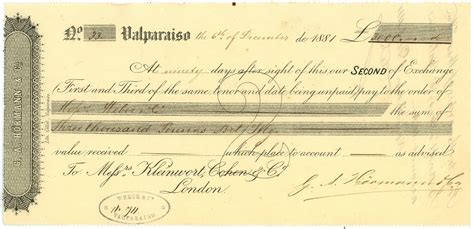 No. 33 Valparaiso the 6th of December de 1881 £3000
At ninety days after sight of this our SECOND of Exchange
(First and Third of the same tenor and date being unpaid) pay to the order of
Weber & Co the sum of
Three thousand Pounds Only
value received which place to account as advised.
To Messrs Kleinwort, Cohen & Co.
London
G. A. Hörmann & Co
VALPARAISO